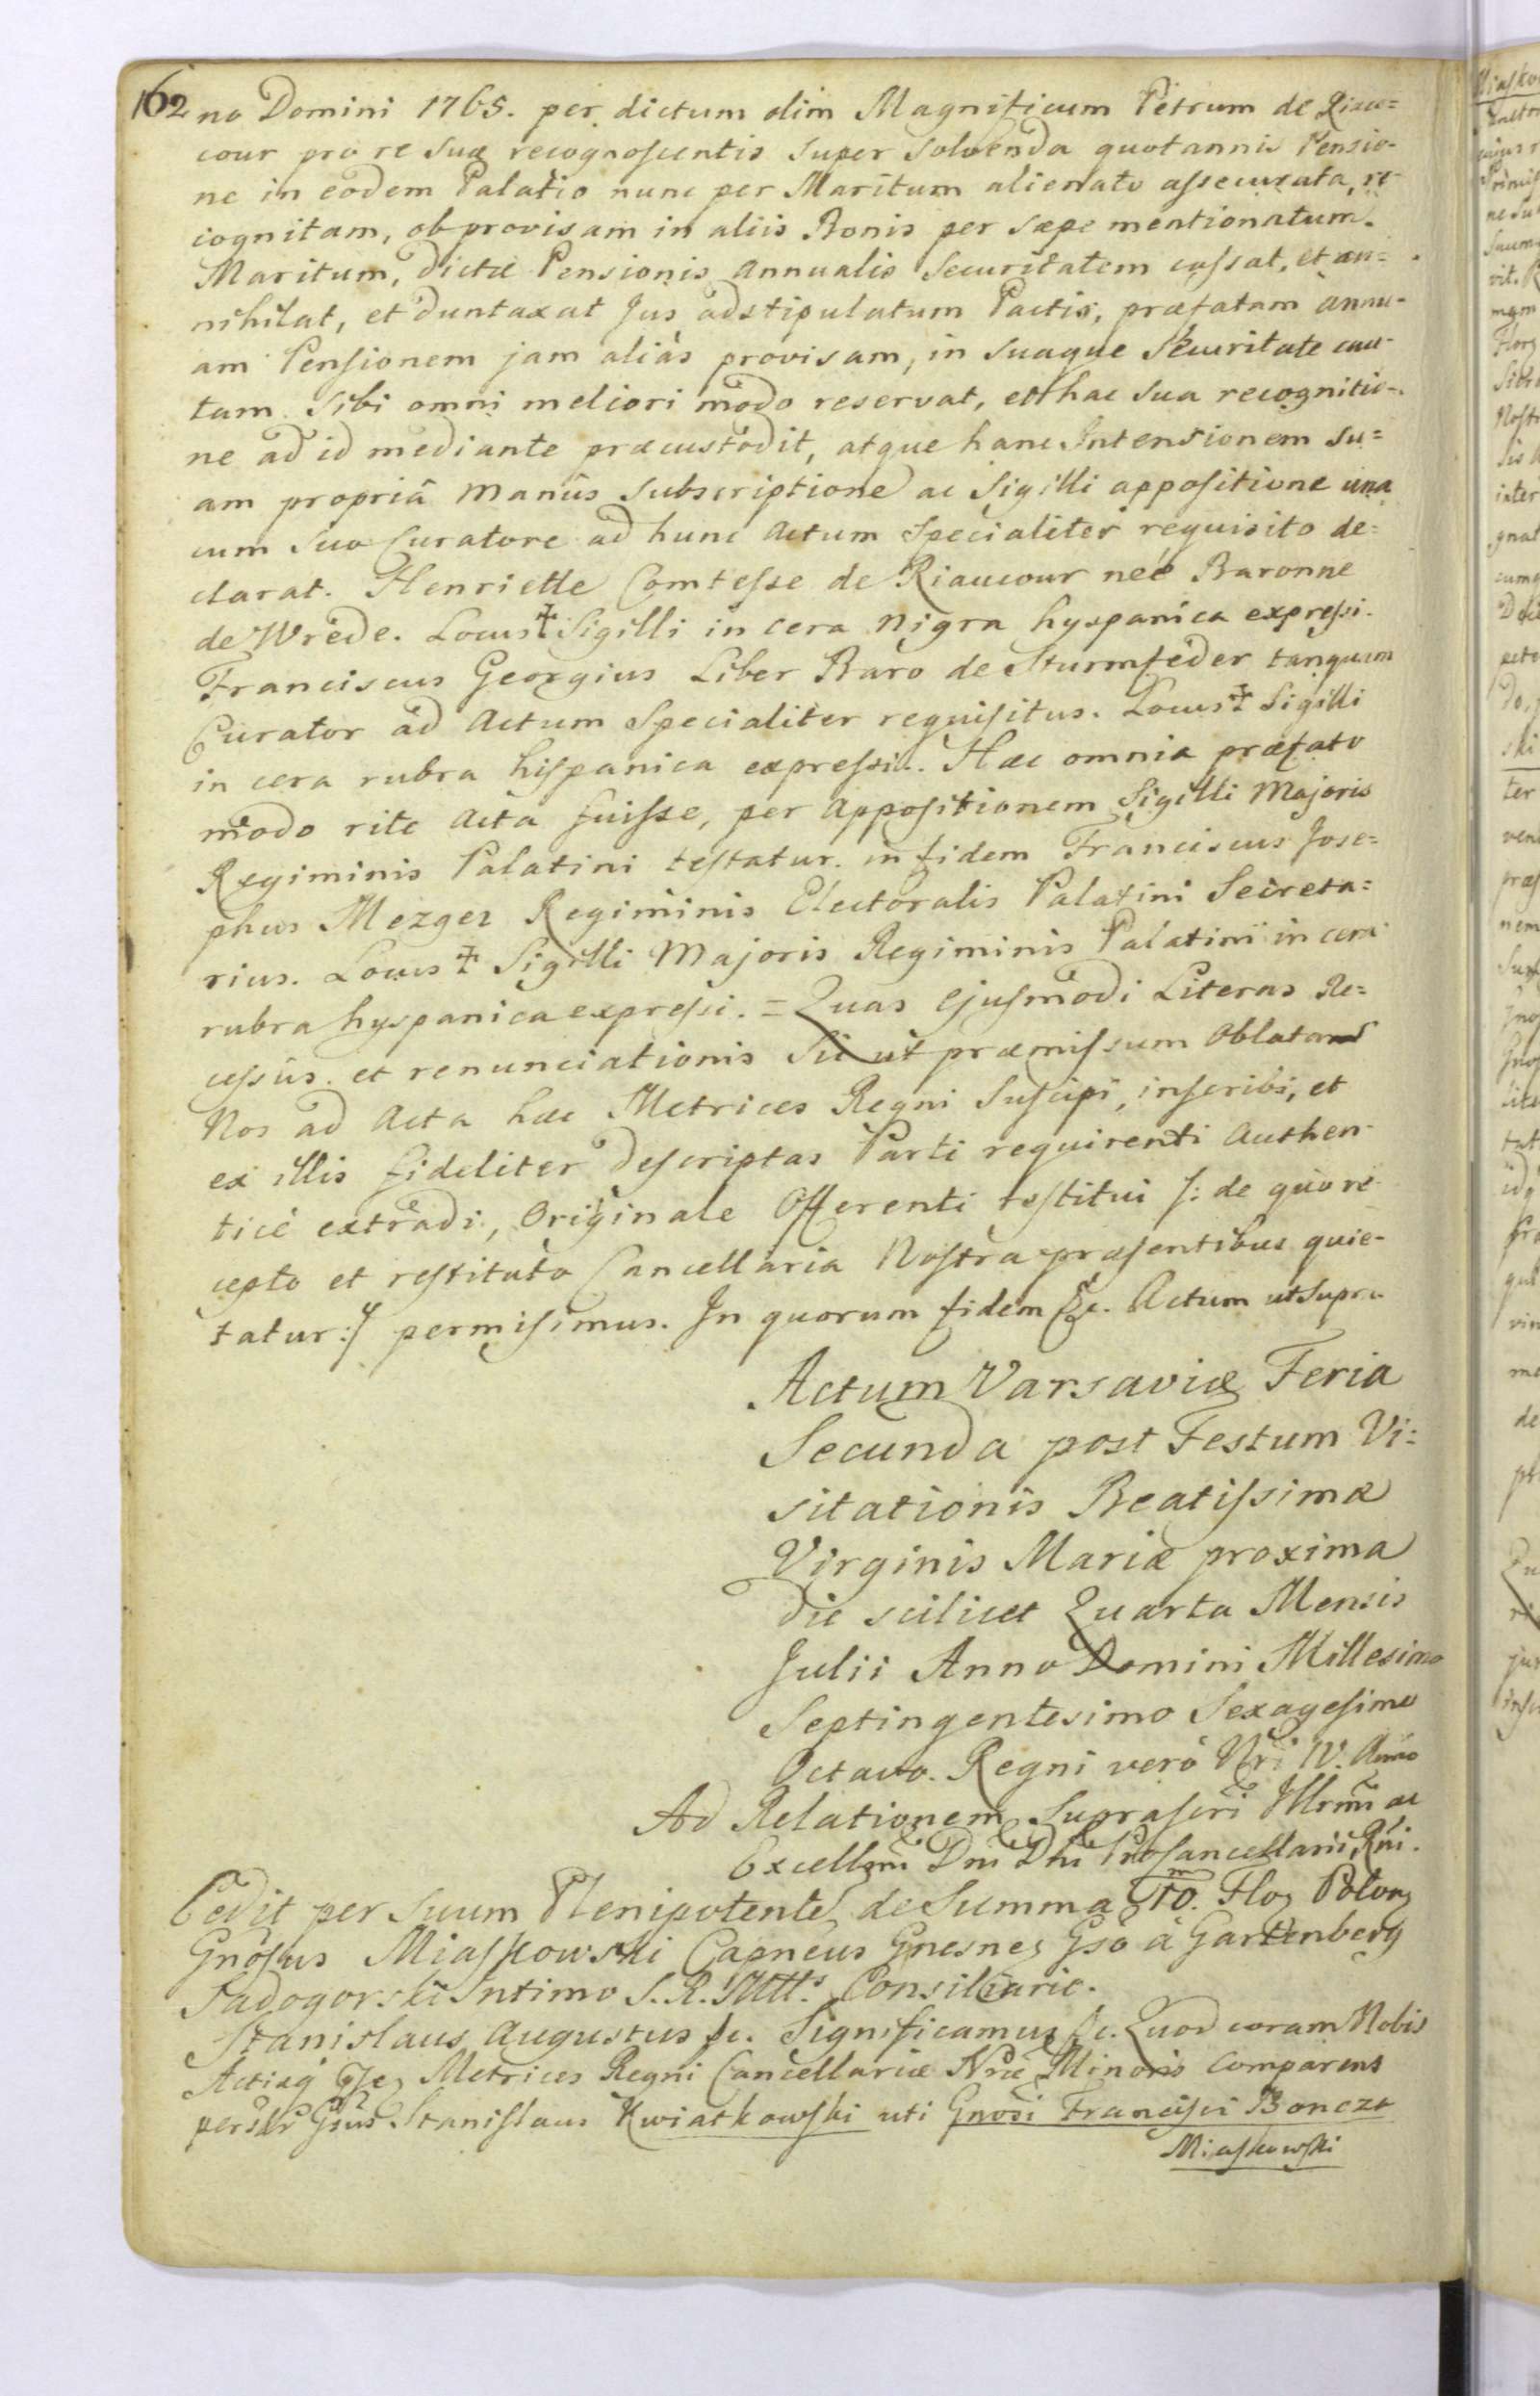 162 no Domini 1765. per dictum olim Magnificum Petrum de Riau=
cour pro re suæ recognoscentis super solvenda quotannis Pensio-
ne in eodem Palatio nunc per Maritum alienato assecurata, re-
cognitam, ob provisam in aliis Bonis per sæpe mentionatum
Maritum, dictæ Pensionis Annualis securitatem cassat, et an=
nihilat, et duntaxat Jus adstipulatum Pactis, præfatam annu-
am Pensionem jam aliàs provisam, in suaque Securitate cau-
tam sibi omni meliori modo reservat, et hac sua recognitio-
ne ad id mediante præcustodit, atque hanc Intensionem su=
am propriâ Manûs subscriptione ac Sigilli appositione una
cum suo Curatore ad hunc Actum Specialiter requisito de=
clarat. Henriette Comtesse de Riaucour neé Baronne
de Wrede. Locus ‡ Sigilli in cera nigra hyspanica expressi.
Franciscus Georgius Liber Baro de Sturmfeder tanquam
Curator ad Actum Specialiter requisitus. Locus ‡ Sigilli
in cera rubra hispanica expressi. Hæc omnia præfato
modo rite acta fuisse, per appositionem Sigilli Majoris
Regiminis Palatini testatur. in fidem Franciscus Jose=
phus Mezger Regiminis Electoralis Palatini Secreta=
rius. Locus ‡ Sigilli Majoris Regiminis Palatini in cera
rubra hyspanica expressi. = Quas ejusmodi Literas Re=
cessûs et renunciationis sic ut præmissum Oblatas
Nos ad Acta hæc Metrices Regni Suscipi, inscribi, et
ex illis fideliter descriptas Parti requirenti Authen-
ticè extradi, Originale Offerenti restitui /: de quo re-
cepto et restituto Cancellaria Nostra præsentibus quie-
tatur :/ permisimus. In quorum fidem &c. Actum ut supra.
Actum Varsaviæ Feria
Secunda post Festum Vi=
sitationis Beatissimæ
Virginis Mariæ proxima
die scilicet Quarta Mensis
Julii Anno Domini Millesimo
Septingentesimo Sexagesimo
Octavo. Regni verò Nri IV. Anno
Ad Relationem Suprascri Illrmi ac
Excellmi Dni Dni Procancellarii Rni.
Cedit per suum Plenipotente de Summa 10. Flor Polon
Gnosus Miaskowski Capneus Gnesnes Gso à Gartenberg
Sadogorski Intimo S. R. Mtts Consiliario.
Stanislaus Augustus &c. Significamus &c. Quod coram Nobis
Metrices Regni Cancellariæ Nræ Minoris Comparens
persler Gsus Stanislaus Kwiatkowski uti Gnosi Francisci Boncza
Miaskowski